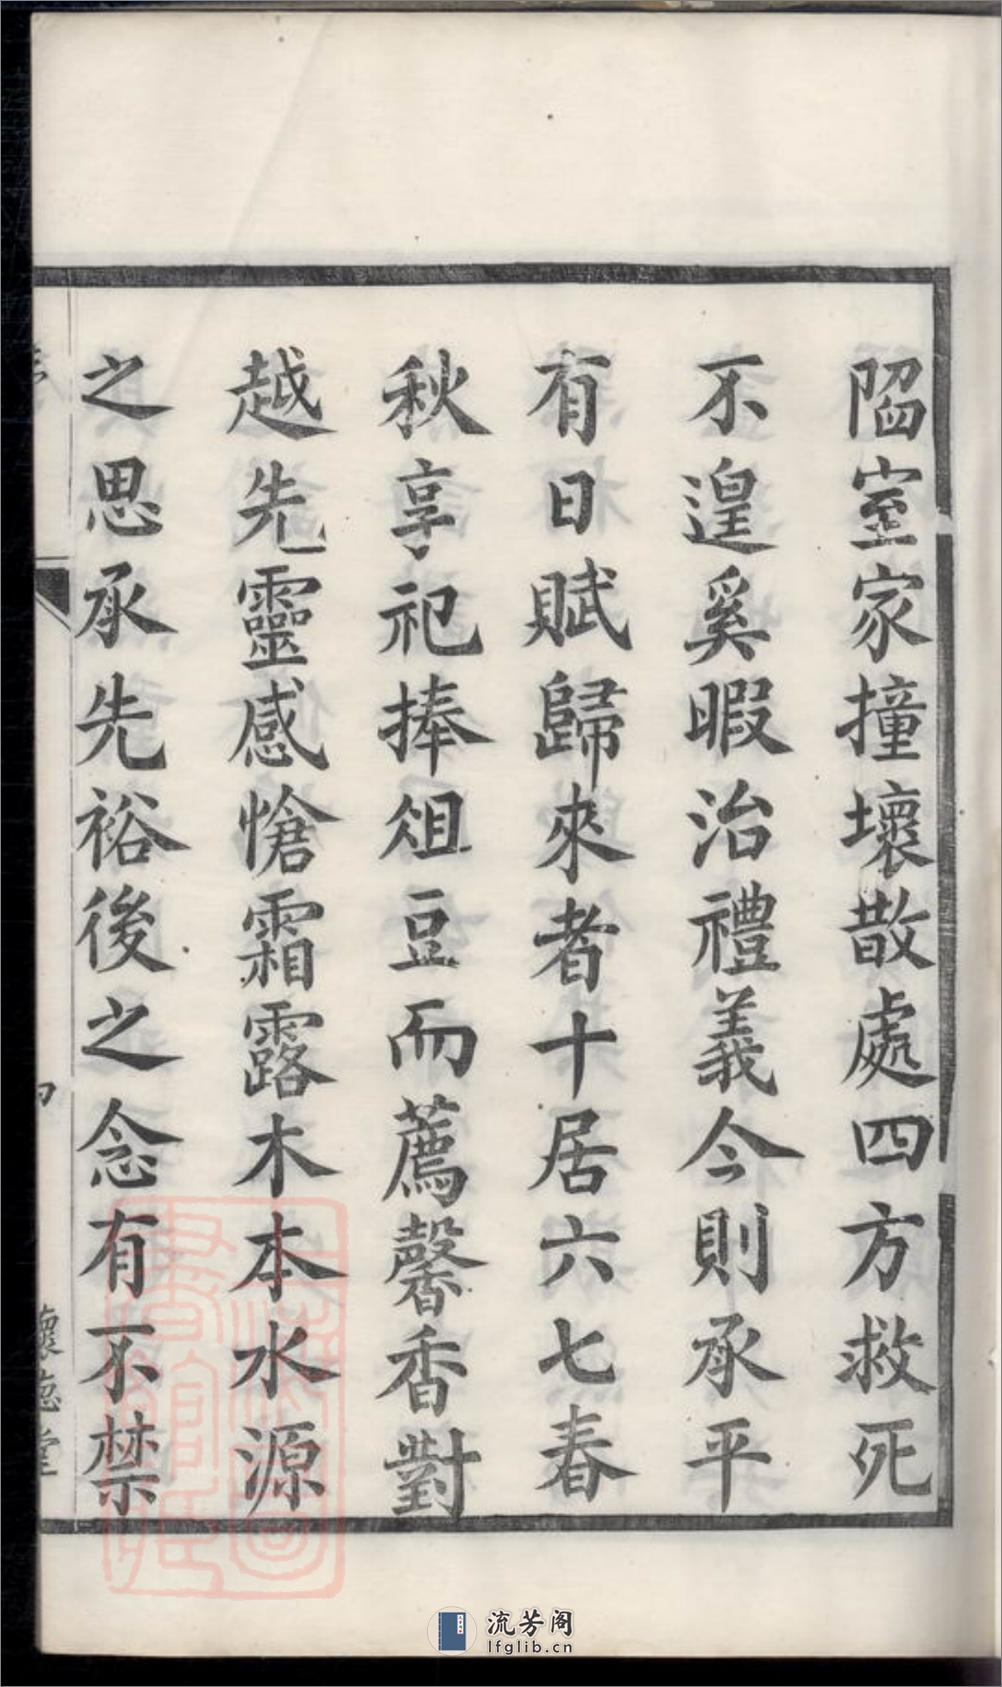 陷室家撞壞散處四方救死
不遑奚暇治禮義今則承平
有日賦歸來者十居六七春
秋享祀捧俎豆而薦馨香對
越先靈感愴霜露木本水源
之思承先裕後之念有不禁
懷德堂
流芳阁
lfglib.cn